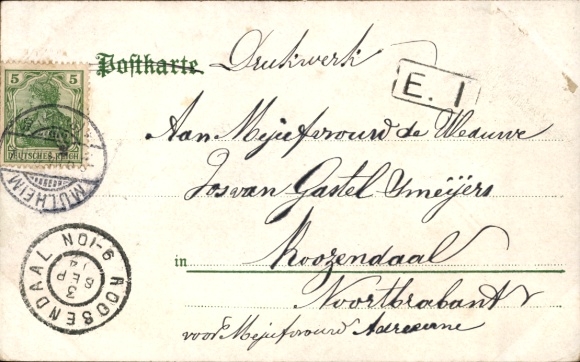 Postkarte Drukwerk
E. 1
5 5
DEUTSCHES REICH
MÜLHEIM
Aan Mejufvrouw de Weduwe
Jos van Gastel Smeijers
in Roozendaal
Noortbrabant
voor Mejufvrouw Adrienne
ROOSENDAAL
9-10N
3
SEP